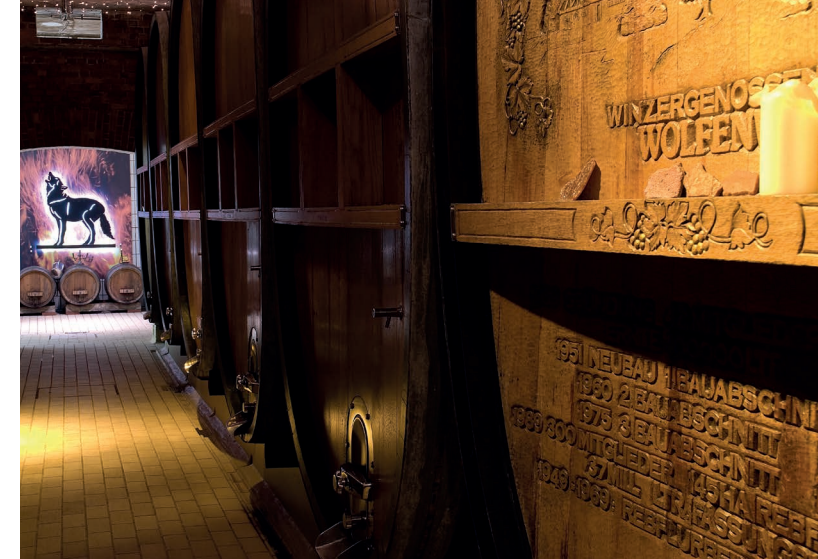 WINZERGENOSSEN
WOLFEN
1951 NEUBAU 1 BAUABSCHNI
1960 2 BAUABSCHNITT
1975 3 BAUABSCHNITT
1989 300 MITGLIEDER 145HA REBF
37MILL LTR FASSUNG
1949-1989: